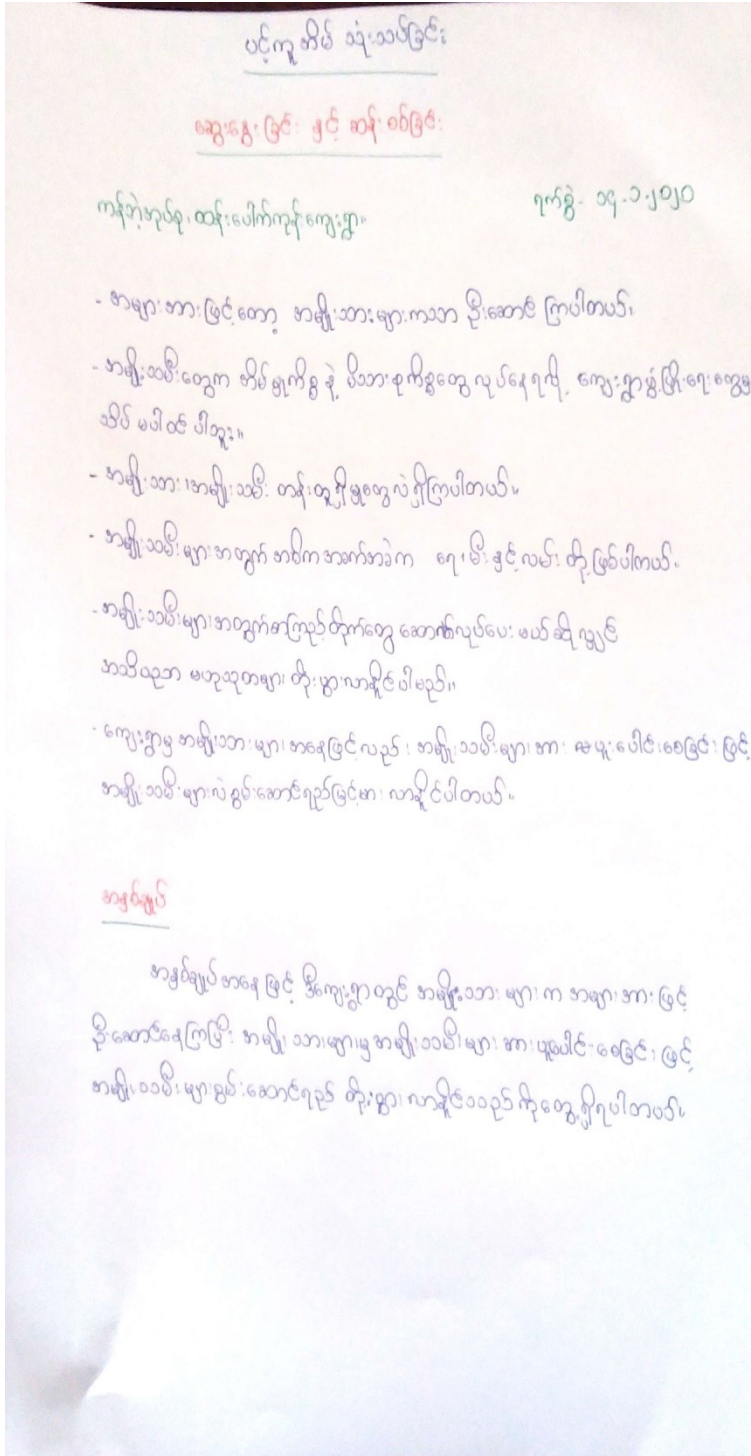 ပင့်ကူအိမ် သုံးသပ်ခြင်း
ဆွေးနွေးခြင်း နှင့် ဆန်းစစ်ခြင်း
ကန်ဘဲ့အုပ်စု၊ ထန်းပေါက်ကုန်းကျေးရွာ။ ရက်စွဲ - ၁၄-၁-၂၀၂၀
- အများအားဖြင့်တော့ အမျိုးသားများကသာ ဦးဆောင် ကြပါတယ်၊
- အမျိုးသမီးတွေက အိမ်မှုကိစ္စ နဲ့ မိသားစုကိစ္စတွေ လုပ်နေရလို့ ကျေးရွာဖွံ့ဖြိုးရေးတွေမှ
သိပ် မပါဝင် ပါဘူး။
- အမျိုးသား၊အမျိုးသမီး တန်းတူရှိမှုတွေလဲ ရှိကြပါတယ်။
- အမျိုးသမီးများအတွက် အဓိကအခက်အခဲက ရေ၊ မီးနှင့်လမ်း တို့ဖြစ်ပါတယ်။
- အမျိုးသမီးများအတွက်စာကြည့်တိုက်တွေ ဆောက်လုပ်ပေး မယ်ဆိုလျှင်
အသိပညာ ဗဟုသုတများ တိုးပွားလာနိုင်ပါမည်။
- ကျေးရွာမှ အမျိုးသားများ အနေဖြင့်လည်း အမျိုးသမီးများအား ပူးပေါင်းစေခြင်း ဖြင့်
အမျိုးသမီးများလဲ စွမ်းဆောင်ရည်မြင့်မား လာနိုင်ပါတယ်။
အနှစ်ချုပ်
အနှစ်ချုပ်အနေဖြင့် ဒီကျေးရွာတွင် အမျိုးသားများက အများအားဖြင့်
ဦးဆောင်နေကြပြီး အမျိုးသားများမှ အမျိုးသမီးများအားပူးပေါင်းစေခြင်းဖြင့်
အမျိုးသမီးများစွမ်းဆောင်ရည် တိုးပွားလာနိုင်သည်ကိုတွေ့ရှိရပါတယ်။